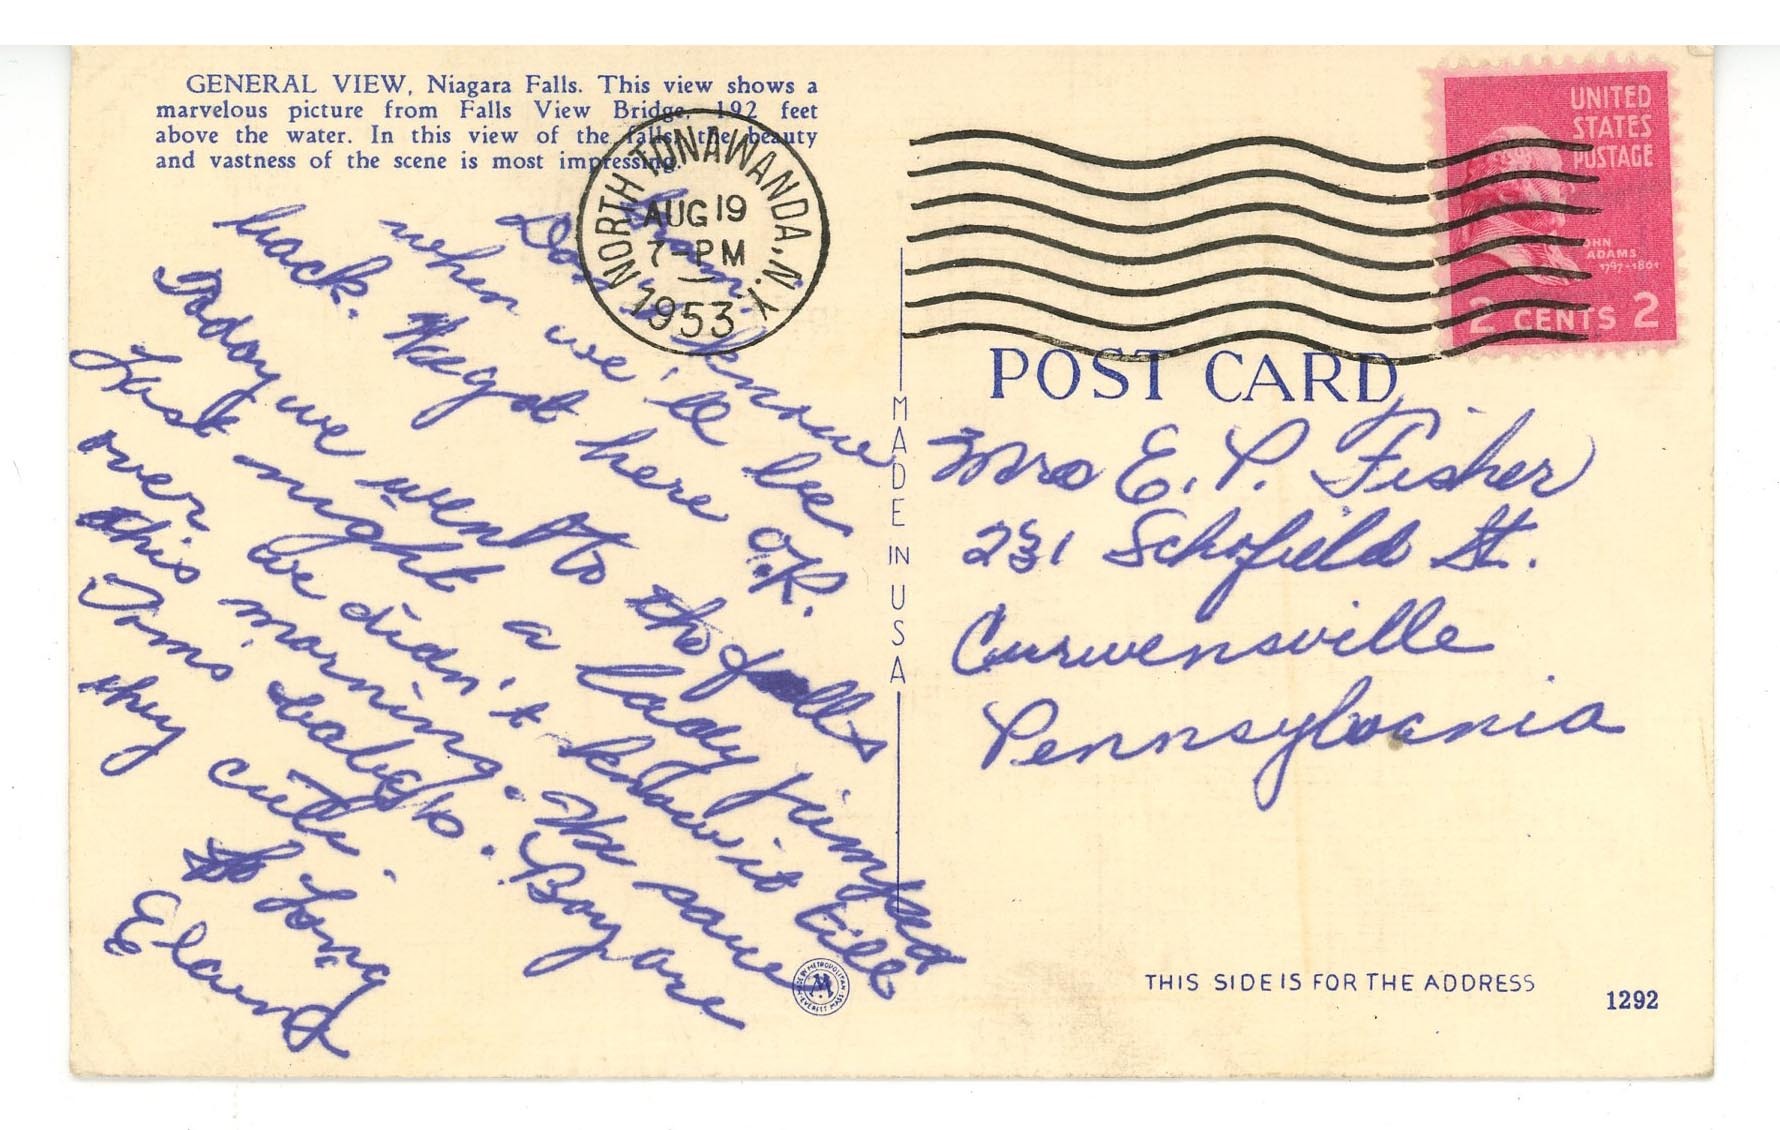 GENERAL VIEW, Niagara Falls. This view shows a
marvelous picture from Falls View Bridge, 192 feet
above the water. In this view of the falls, the beauty
and vastness of the scene is most impressing.
NORTH TONAWANDA, N.Y.
AUG 19
7 - PM
1953
UNITED
STATES
POSTAGE
JOHN
ADAMS
1797-1801
2 CENTS 2
POST CARD
Don't know
when we'll be
back. We got here O.K.
Today we went to the falls
Last night a lady jumped
over we didn't know it till
this morning. We saw
Toms babys. Boy are
they cute.
So Long
MADE IN USA
Mrs E. P. Fisher
231 Schofield St.
Curwensville
Pennsylvania
MADE BY METROPOLITAN
EVERETT MASS.
M
THIS SIDE IS FOR THE ADDRESS
1292